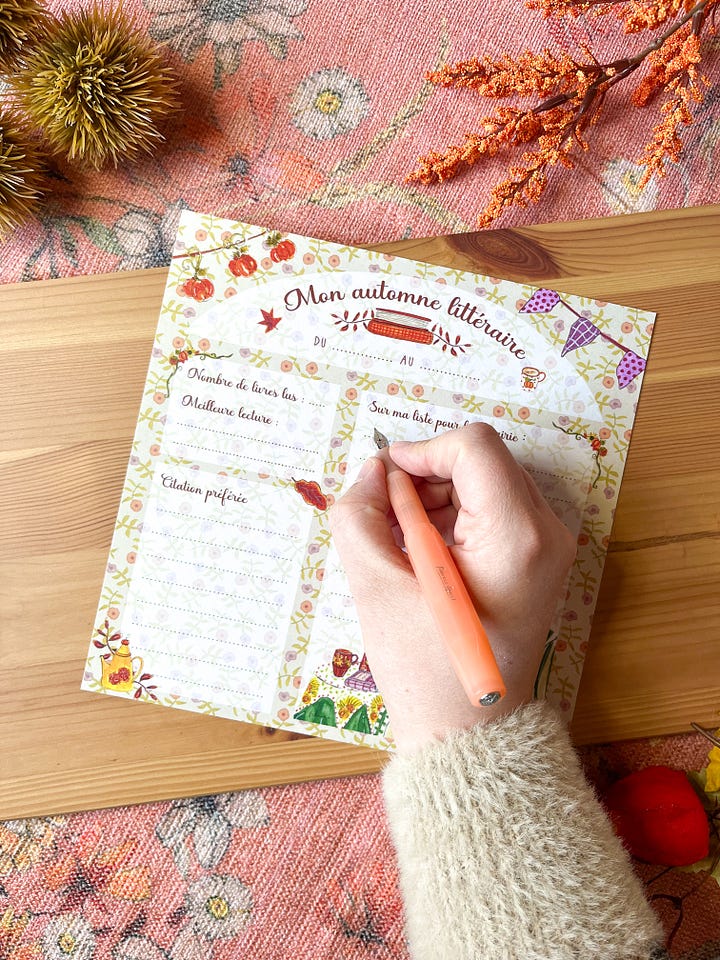 Mon automne littéraire
DU ............ AU ............
Nombre de livres lus : ....
Meilleure lecture :
Sur ma liste pour :
Citation préférée